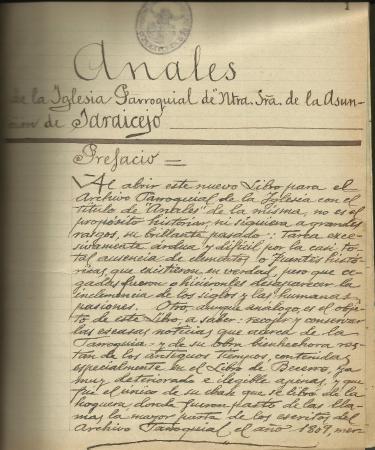 1
Anales
de la Iglesia Parroquial de "Ntra. Sra. de la Asun-
ción de Jaraicejo
Prefacio =
Al abrir este nuevo Libro para el
Archivo Parroquial de la Iglesia con el
título de "Anales" de la misma, no es el
propósito historiar, ni siquiera a grandes
rasgos, su brillante pasado: Tarea exce-
sivamente ardua y difícil por la casi to-
tal ausencia de elementos o fuentes histó-
ricas, que existieron en verdad, pero que ce-
gadas fueron o hiciéronles desaparecer la
inclemencia de los siglos y las humanas
pasiones. Otro, aunque análogo, es el obje-
to de este Libro a saber: recoger y conservar
las escasas noticias que acerca de la
Parroquia y de su labor bienhechora res-
tan de los antiguos tiempos, contenidas
especialmente en el Libro de Becerro, ya
muy deteriorado e ilegible apenas, y que
fué el único de su clase que se libró de la
hoguera donde fueron pasto de las lla-
mas la mayor parte de los escritos del
Archivo Parroquial, el año 1809, mer-